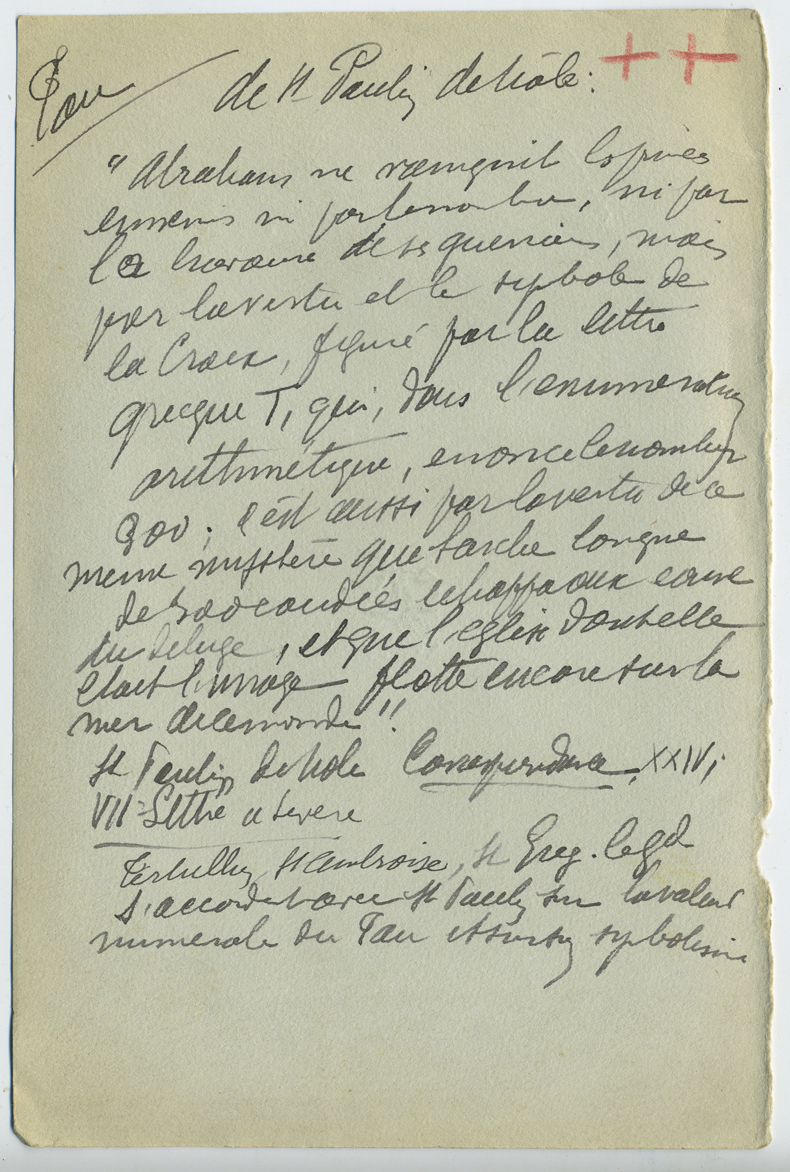 Tau
de St Paulin de Nole : ++
"Abraham ne vainquit les princes
ennemis ni par le nombre, ni par
la bravoure de ses guerriers, mais
par la vertu et le symbole de
la Croix, figuré par la lettre
grecque T, qui, dans l'enumeration
arithmétique, enonce le nombre
300 ; c'est aussi par la vertu de ce
meme mystère que l'arche longue
de 300 coudées echappa aux eaux
du deluge, et que l'eglise dont elle
etait l'image flotte encore sur la
mer de ce monde"
St Paulin de Nole Correspondance, XXIV,
VIIe Lettre a Severe
Tertullien, St Ambroise, St Greg. le Gd
s'accordent avec St Paulin sur la valeur
numerale du Tau et sur son symbolisme